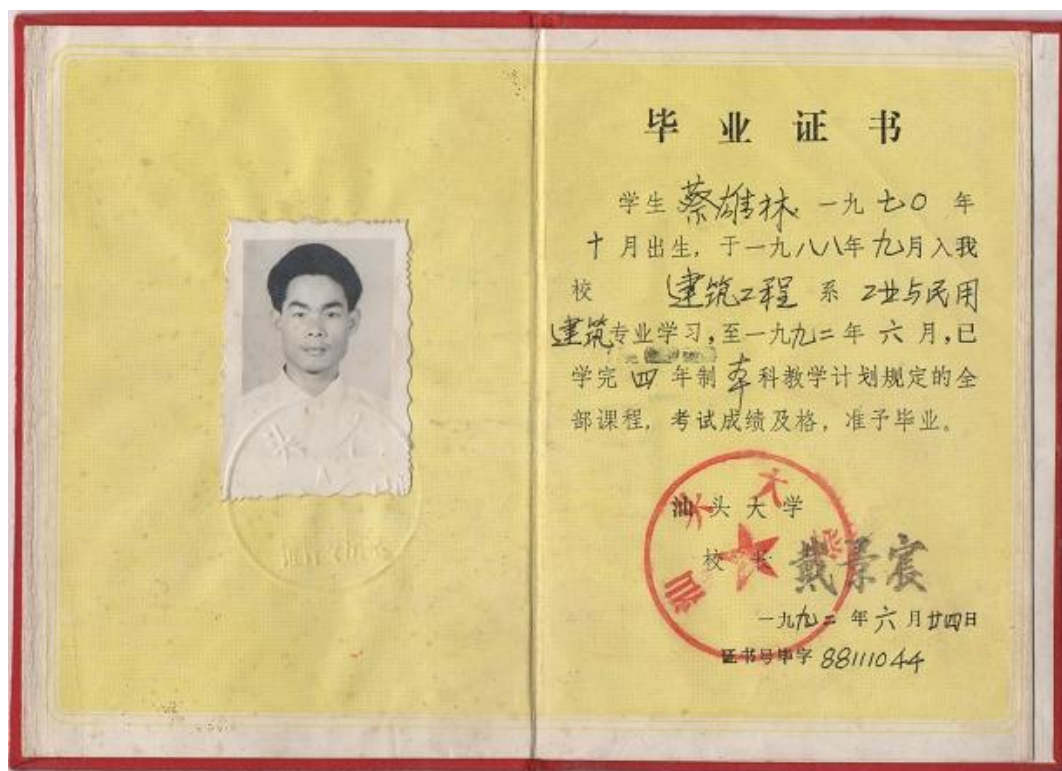 毕业证书
学生 蔡雄林 一九七〇年
十月出生,于一九八八年九月入我
校 建筑工程 系 工业与民用
建筑专业学习,至一九九二年六月,已
学完四年制本科教学计划规定的全
部课程,考试成绩及格,准予毕业。
汕头大学
汕头大学
校长 戴景宸
一九九二年六月廿四日
证书号毕字 88111044